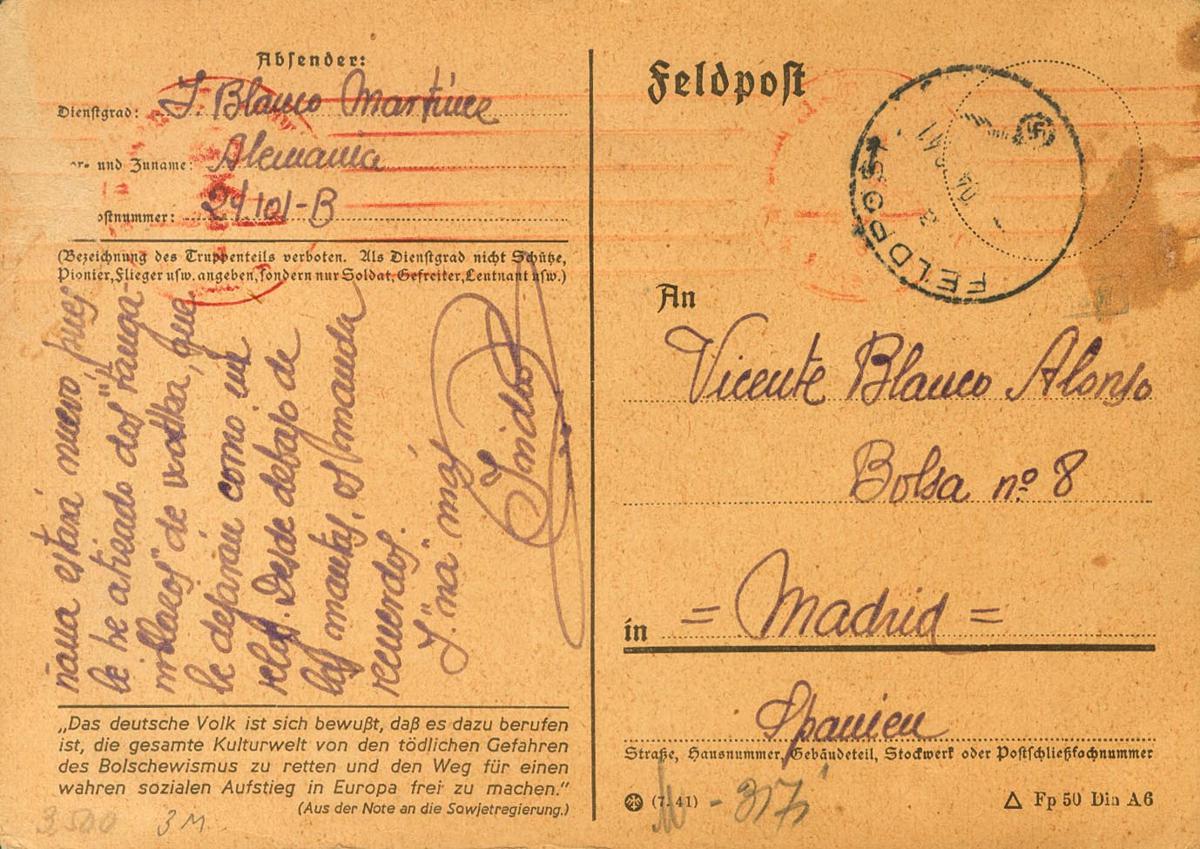 Absender:
Dienstgrad: I. Blanco Martínez
und Zuname: Alemania
ostnummer: 24101-B
(Bezeichnung des Truppenteils verboten. Als Dienstgrad nicht Schütze,
Pionier, Flieger usw. angeben, sondern nur Soldat, Gefreiter, Leutnant usw.)
ñana estará nuevo pues
le he atizado dos
de vodka, que
le dejarán como un
reloj. Desde debajo de
las mantas, os manda
recuerdos.
Y "ná" más
Isidro
„Das deutsche Volk ist sich bewußt, daß es dazu berufen
ist, die gesamte Kulturwelt von den tödlichen Gefahren
des Bolschewismus zu retten und den Weg für einen
wahren sozialen Aufstieg in Europa frei zu machen.“
(Aus der Note an die Sowjetregierung.)
3500 3M
Feldpost
FELDPOST
An
Vicente Blanco Alonso
Bolsa nº 8
in = Madrid =
Spanien
Straße, Hausnummer, Gebäudeteil, Stockwerk oder Postschließfachnummer
(7. 41)
△ Fp 50 Din A6